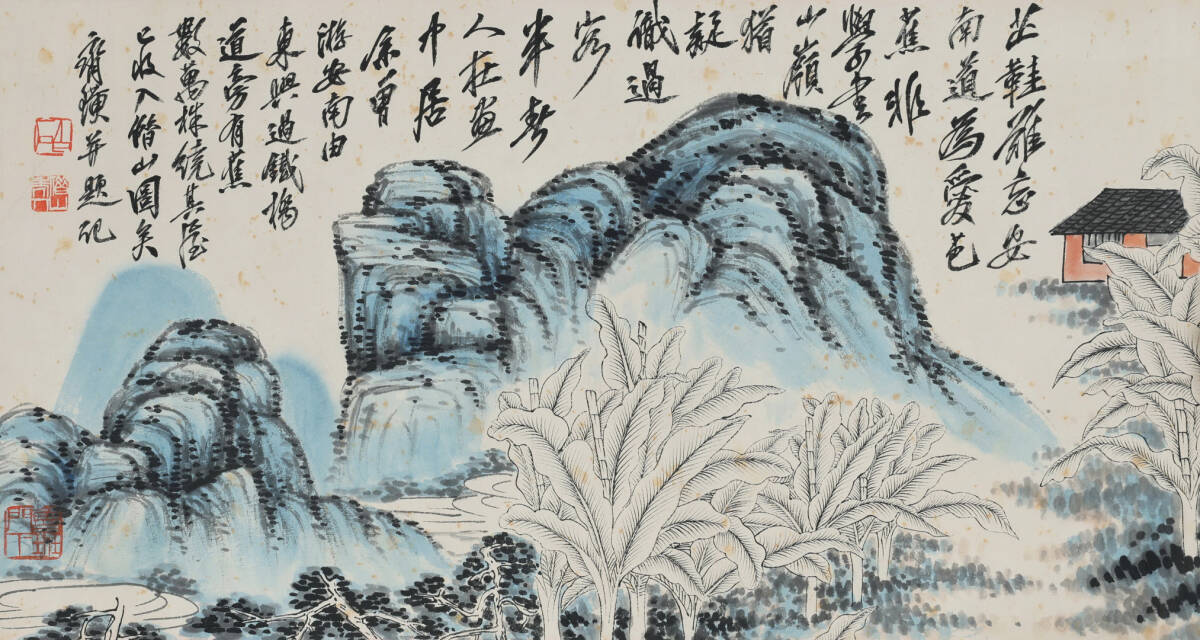 芒鞋難忘安
南道為愛芭
蕉非
學書
山嶺
猶
疑
識過
客
半春
人在畫
中居
余曾
游安南由
東興過鐵橋
道旁有蕉
數萬株繞其屋
已收入借山圖矣
齊璜并題記